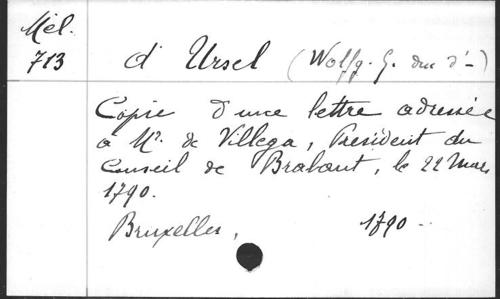 Mél.
713
d'Ursel (Wolfg. G. duc d'-)
Copie d'une lettre adressée
à Mr. de Villega, Président du
Conseil de Brabant, le 22 Mars
1790.
Bruxelles, 1790.-